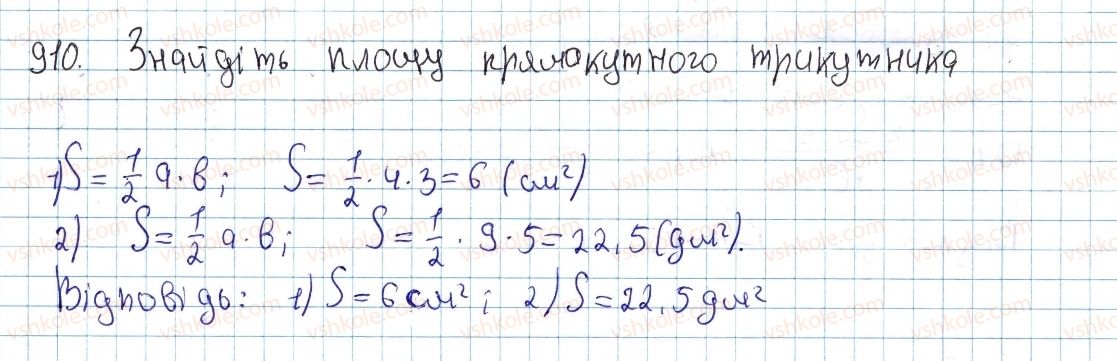 910. Знайдіть площу прямокутного трикутника
1) S = 1/2 a · b; S = 1/2 · 4 · 3 = 6 (см²)
2) S = 1/2 a · b; S = 1/2 · 9 · 5 = 22,5 (дм²).
Відповідь: 1) S = 6 см²; 2) S = 22,5 дм²